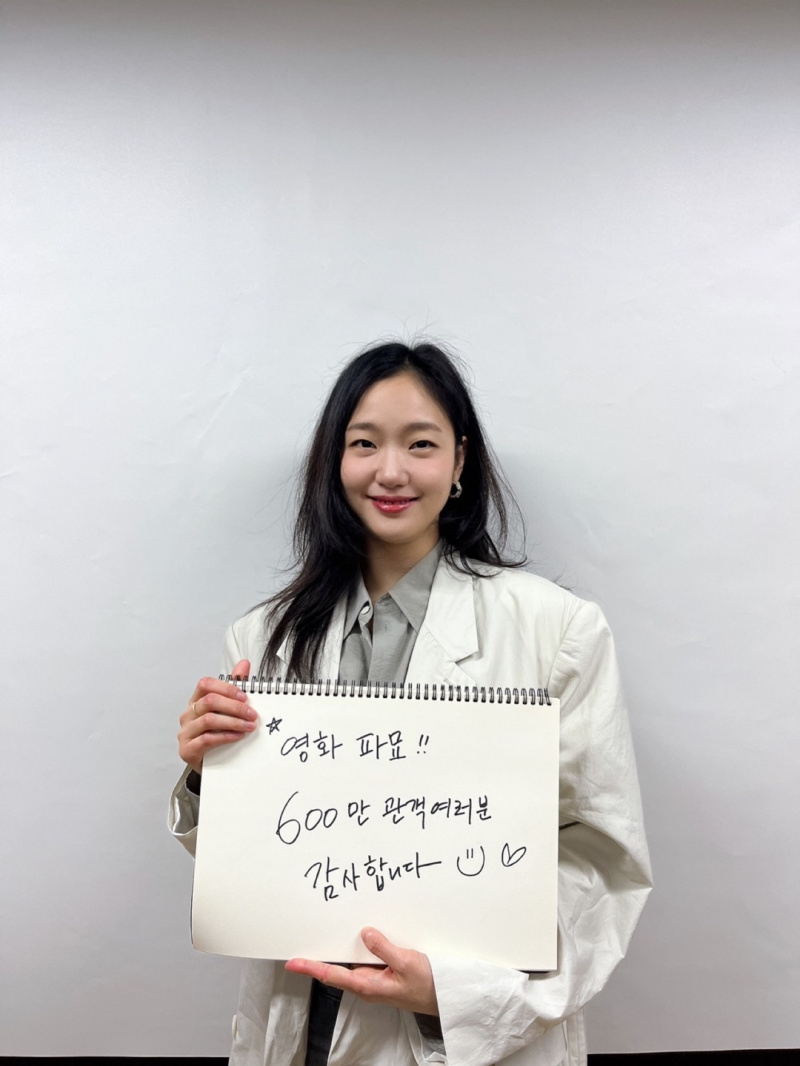 ☆영화 파묘!!
600만 관객여러분
감사합니다 :) ♡